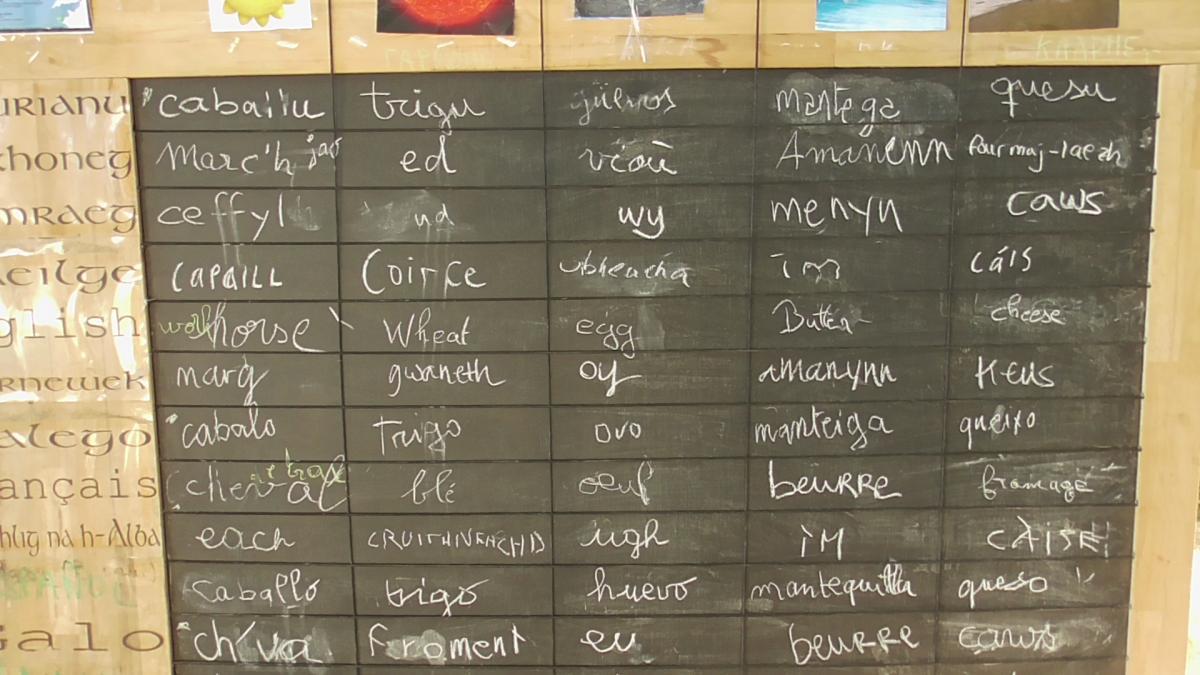 KAAPHE
URIANU caballu trigu güevos mantega quesu
khoneg Marc'h jao ed vioù Amanenn fourmaj-laezh
mraeg ceffyl ud wy menyn caws
eilge CAPAILL Coirce ubheacha im cáis
glish work horse wheat egg Butter cheese
rnewek marg gwaneth oy amanynn Keus
alego cabalo Trigo ovo manteiga queixo
ançais cheval de trait blé oeuf beurre fromage
hlig na h-Alba each CRUITHNEACHD ugh ìM CÀISE
SPAÑOL caballo trigo huevo mantequilla queso
Galo ch'va froment eu beurre caws